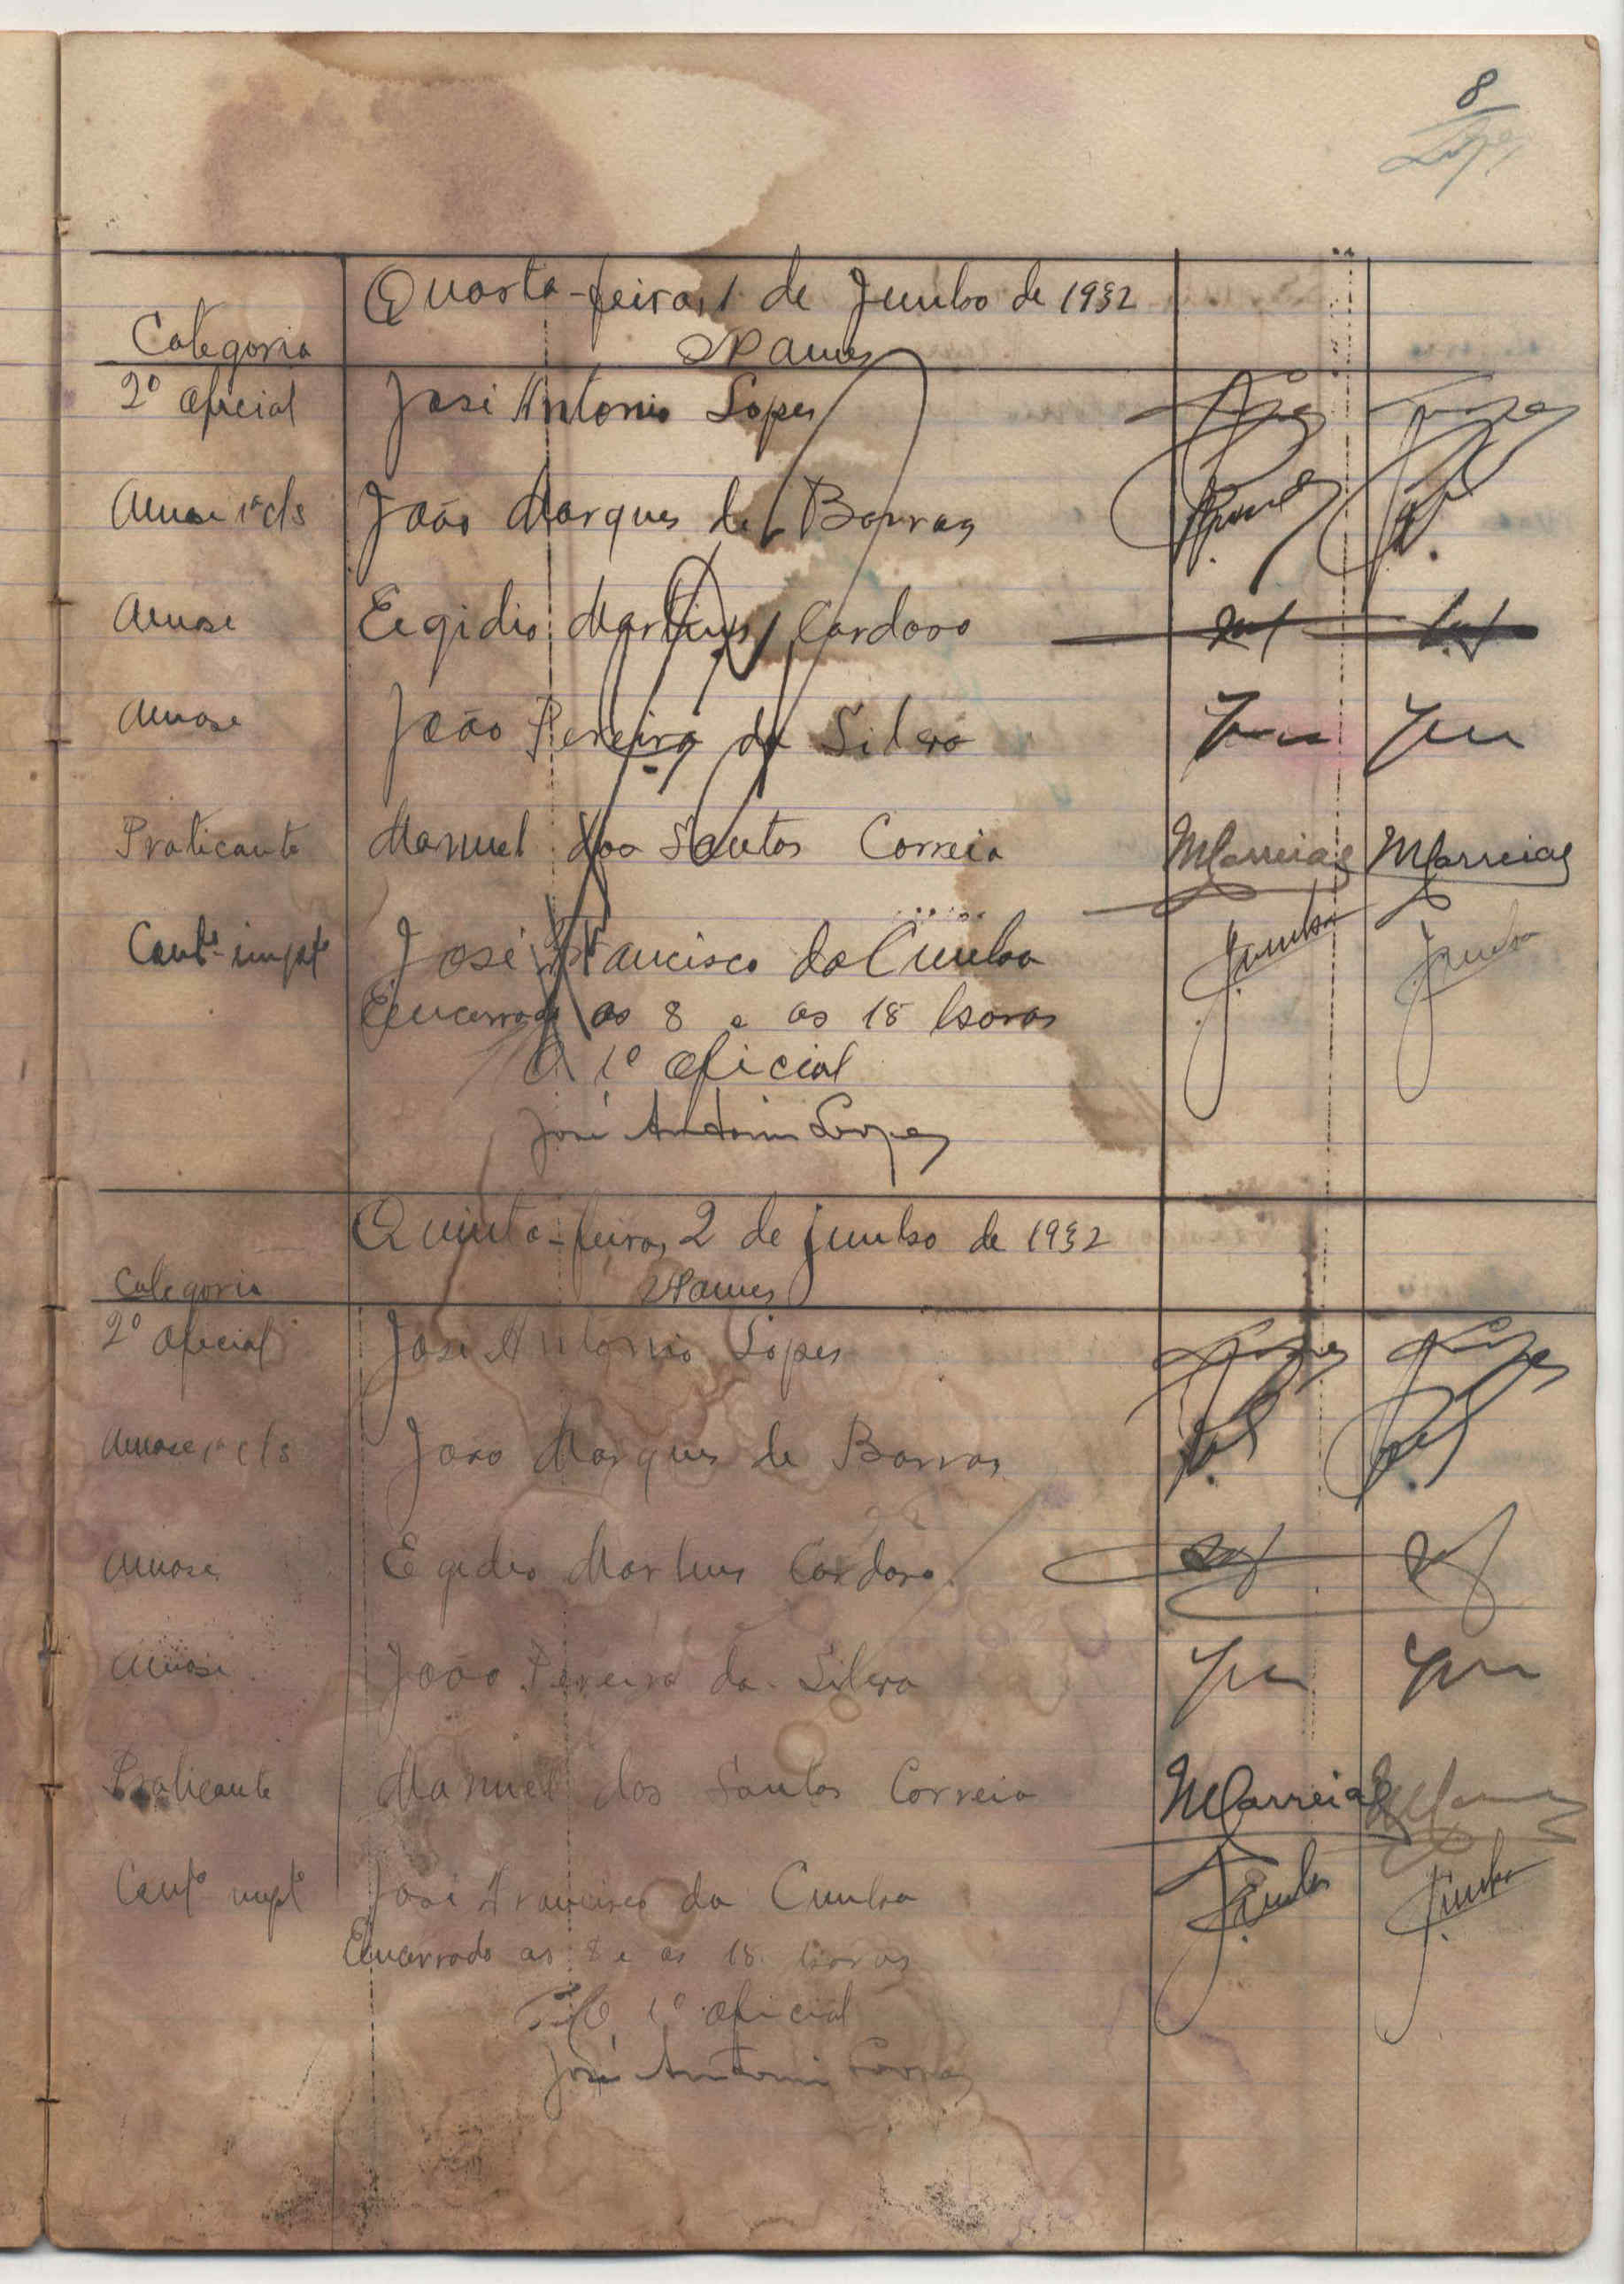 8
Lopes
Quarta-feira, 1 de Junho de 1932
Categoria Nomes
2º Oficial José Antonio Lopes Lopes Lopes
1ª cls João Marques de Barros
Egidio Martins Cardoso
João Pereira da Silva
Praticante Manuel dos Santos Correia MCorreia MCorreia
José Francisco da Cunha JCunha JCunha
Encerrado as 8 e as 18 horas
O 1º Oficial
José Antonio Lopes
Quinta-feira, 2 de junho de 1932
Categoria Nomes
2º Oficial José Antonio Lopes Lopes Lopes
1ª cls João Marques de Barros
Egidio Martins Cardoso
João Pereira da Silva
Praticante Manuel dos Santos Correia MCorreia
José Francisco da Cunha JCunha JCunha
Encerrado as 8 e as 18 horas
O 1º Oficial
José Antonio Lopes